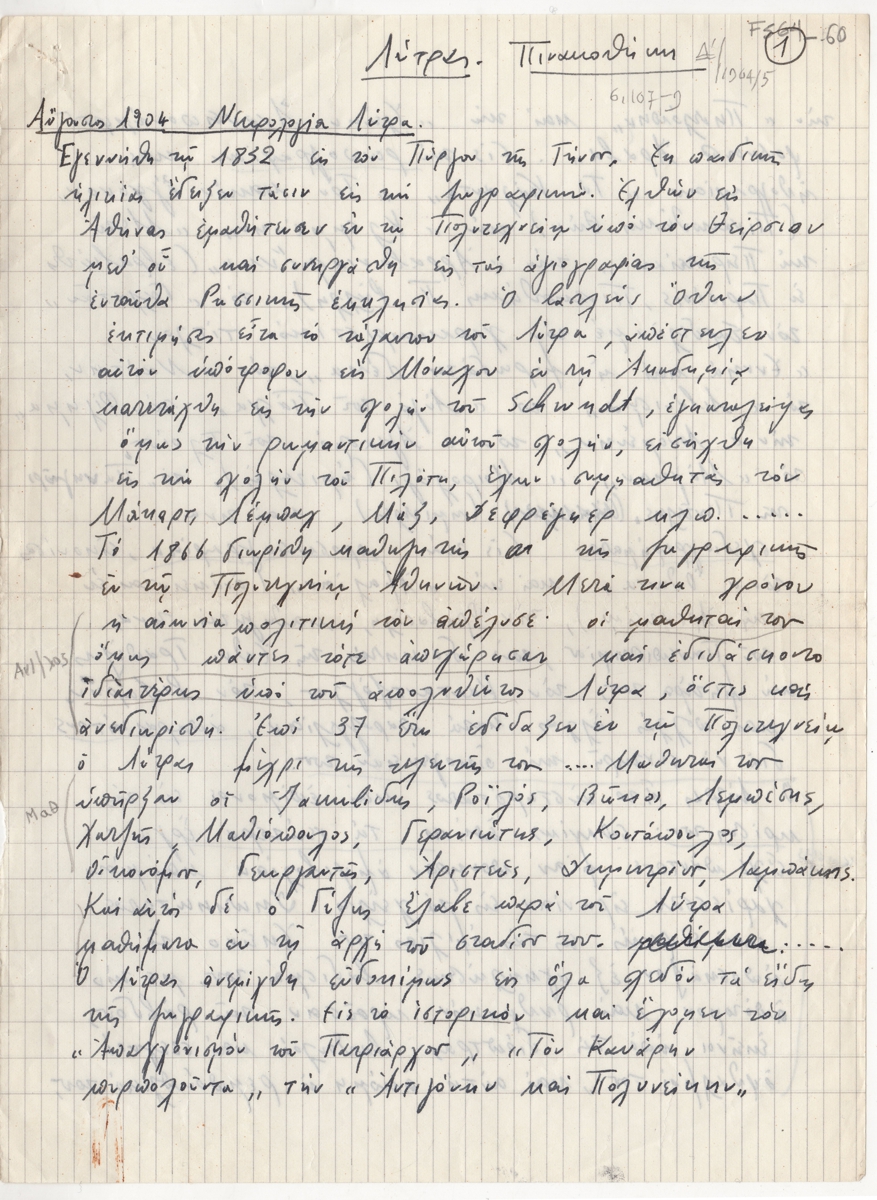 Λύτρας. Πινακοθήκη Δ'/1904/5
1 60
6,107-9
Αὔγουστος 1904 Νεκρολογία Λύτρα.
Ἐγεννήθη τῷ 1832 εἰς τὸν Πύργον τῆς Τήνου. Ἐκ παιδικῆς
ἡλικίας ἔδειξεν τάσιν εἰς τὴν ζωγραφικήν. Ἐλθὼν εἰς
Ἀθήνας ἐμαθήτευσεν ἐν τῷ Πολυτεχνείῳ ὑπὸ τὸν Θείρσιον
μεθ' οὗ καὶ συνειργάσθη εἰς τὰς ἁγιογραφίας τῆς
ἐνταῦθα Ρωσσικῆς ἐκκλησίας. Ὁ βασιλεὺς Ὄθων
ἐκτιμήσας εἶτα τὸ τάλαντον τοῦ Λύτρα, ἀπέστειλεν
αὐτὸν ὑπότροφον εἰς Μόναχον ἐν τῇ Ἀκαδημίᾳ
κατετάχθη εἰς τὴν σχολὴν τοῦ Schwndt, ἐγκαταλείψας
ὅμως τὴν ρωμαντικὴν αὐτοῦ σχολήν, εἰσήχθη
εἰς τὴν σχολὴν τοῦ Πιλότη, ἔχων συμμαθητὰς τὸν
Μάκαρτ, Λέμπαχ, Μάξ, Δεφρέγκερ κλπ. .....
Τὸ 1866 διωρίσθη καθηγητὴς τῆς ζωγραφικῆς
ἐν τῷ Πολυτεχνείῳ Ἀθηνῶν. Μετά τινα χρόνον
ἡ αἰωνία πολιτικὴ τὸν ἀπέλυσε· οἱ μαθηταί του
ὅμως πάντες τότε ἀπεχώρησαν καὶ ἐδιδάσκοντο
ἰδιαιτέρως ὑπὸ τοῦ ἀπολυθέντος Λύτρα, ὅστις καὶ
ἀνεδιωρίσθη. Ἐπὶ 37 ἔτη ἐδίδαξεν ἐν τῷ Πολυτεχνείῳ
ὁ Λύτρας μέχρι τῆς τελευτῆς του .... Μαθηταί του
Μαθ
ὑπῆρξαν οἱ Ἰακωβίδης, Ροϊλός, Βῶκος, Λεμπέσης,
Χατζῆς, Μαθιόπουλος, Γερανιώτης, Κοντόπουλος,
Οἰκονόμου, Γεωργαντᾶς, Ἀριστεύς, Δημητρίου, Λαμπάκης.
Καὶ αὐτὸς δὲ ὁ Γύζης ἔλαβε παρὰ τοῦ Λύτρα
μαθήματα ἐν τῇ ἀρχῇ τοῦ σταδίου του. .....
Ὁ Λύτρας ἀνεμίχθη εὐδοκίμως εἰς ὅλα σχεδὸν τὰ εἴδη
τῆς ζωγραφικῆς. Εἰς τὸ ἱστορικὸν καὶ ἔχομεν τὸν
"Ἀπαγχονισμὸν τοῦ Πατριάρχου„ "Τὸν Κανάρην
πυρπολοῦντα„ τὴν "Ἀντιγόνην καὶ Πολυνείκην„